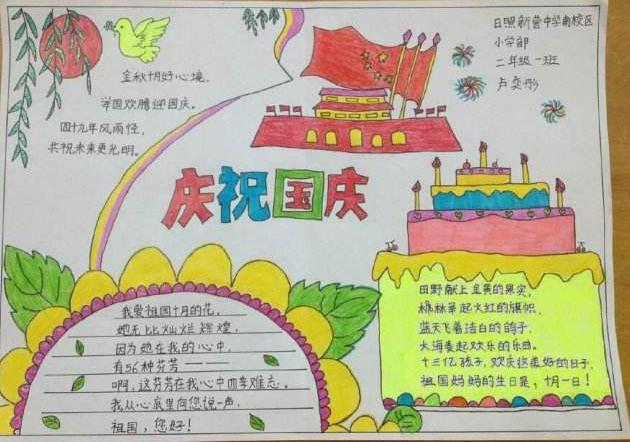 金秋十月好心境,
举国欢腾迎国庆。
四十九年风雨恒,
共祝未来更光明。
日照新营中学南校区
小学部
二年级一班
卢奕彤
庆祝国庆
我爱祖国十月的花,
她无比灿烂辉煌,
因为她在我的心中,
有56种芬芳——
啊,这芬芳在我心中四季难忘。
我从心底里向您说一声,
祖国,您好!
田野献上金黄的果实,
枫林举起火红的旗帜,
蓝天飞着洁白的鸽子,
大海奏起欢乐的乐曲。
十三亿孩子,欢庆这美好的日子,
祖国妈妈的生日是,十月一日!